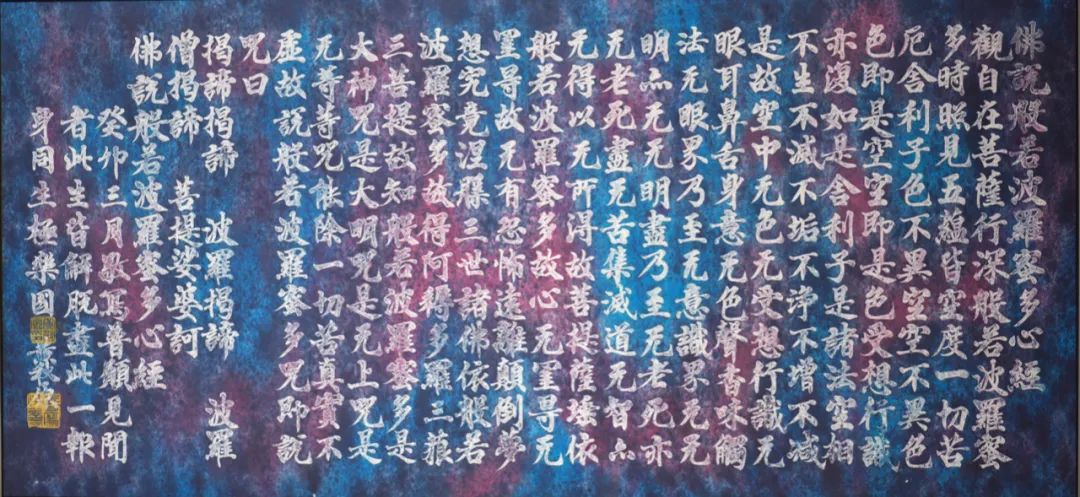 佛說般若波羅蜜多心經
觀自在菩薩行深般若波羅蜜
多時照見五蘊皆空度一切苦
厄舍利子色不異空空不異色
色即是空空即是色受想行識
亦復如是舍利子是諸法空相
不生不滅不垢不淨不增不減
是故空中无色无受想行識无
眼耳鼻舌身意无色聲香味觸
法无眼界乃至无意識界无无
明亦无无明盡乃至无老死亦
无老死盡无苦集滅道无智亦
无得以无所得故菩提薩埵依
般若波羅蜜多故心无罣㝵无
罣㝵故无有恐怖遠離顛倒夢
想究竟涅槃三世諸佛依般若
波羅蜜多故得阿耨多羅三藐
三菩提故知般若波羅蜜多是
大神咒是大明咒是无上咒是
无等等咒能除一切苦真實不
虛故說般若波羅蜜多咒即說
咒曰
揭諦揭諦 波羅揭諦 波羅
僧揭諦 菩提娑婆訶
佛說般若波羅蜜多心經
癸卯三月敬寫普願見聞
者此生皆解脫盡此一報
身同生極樂國